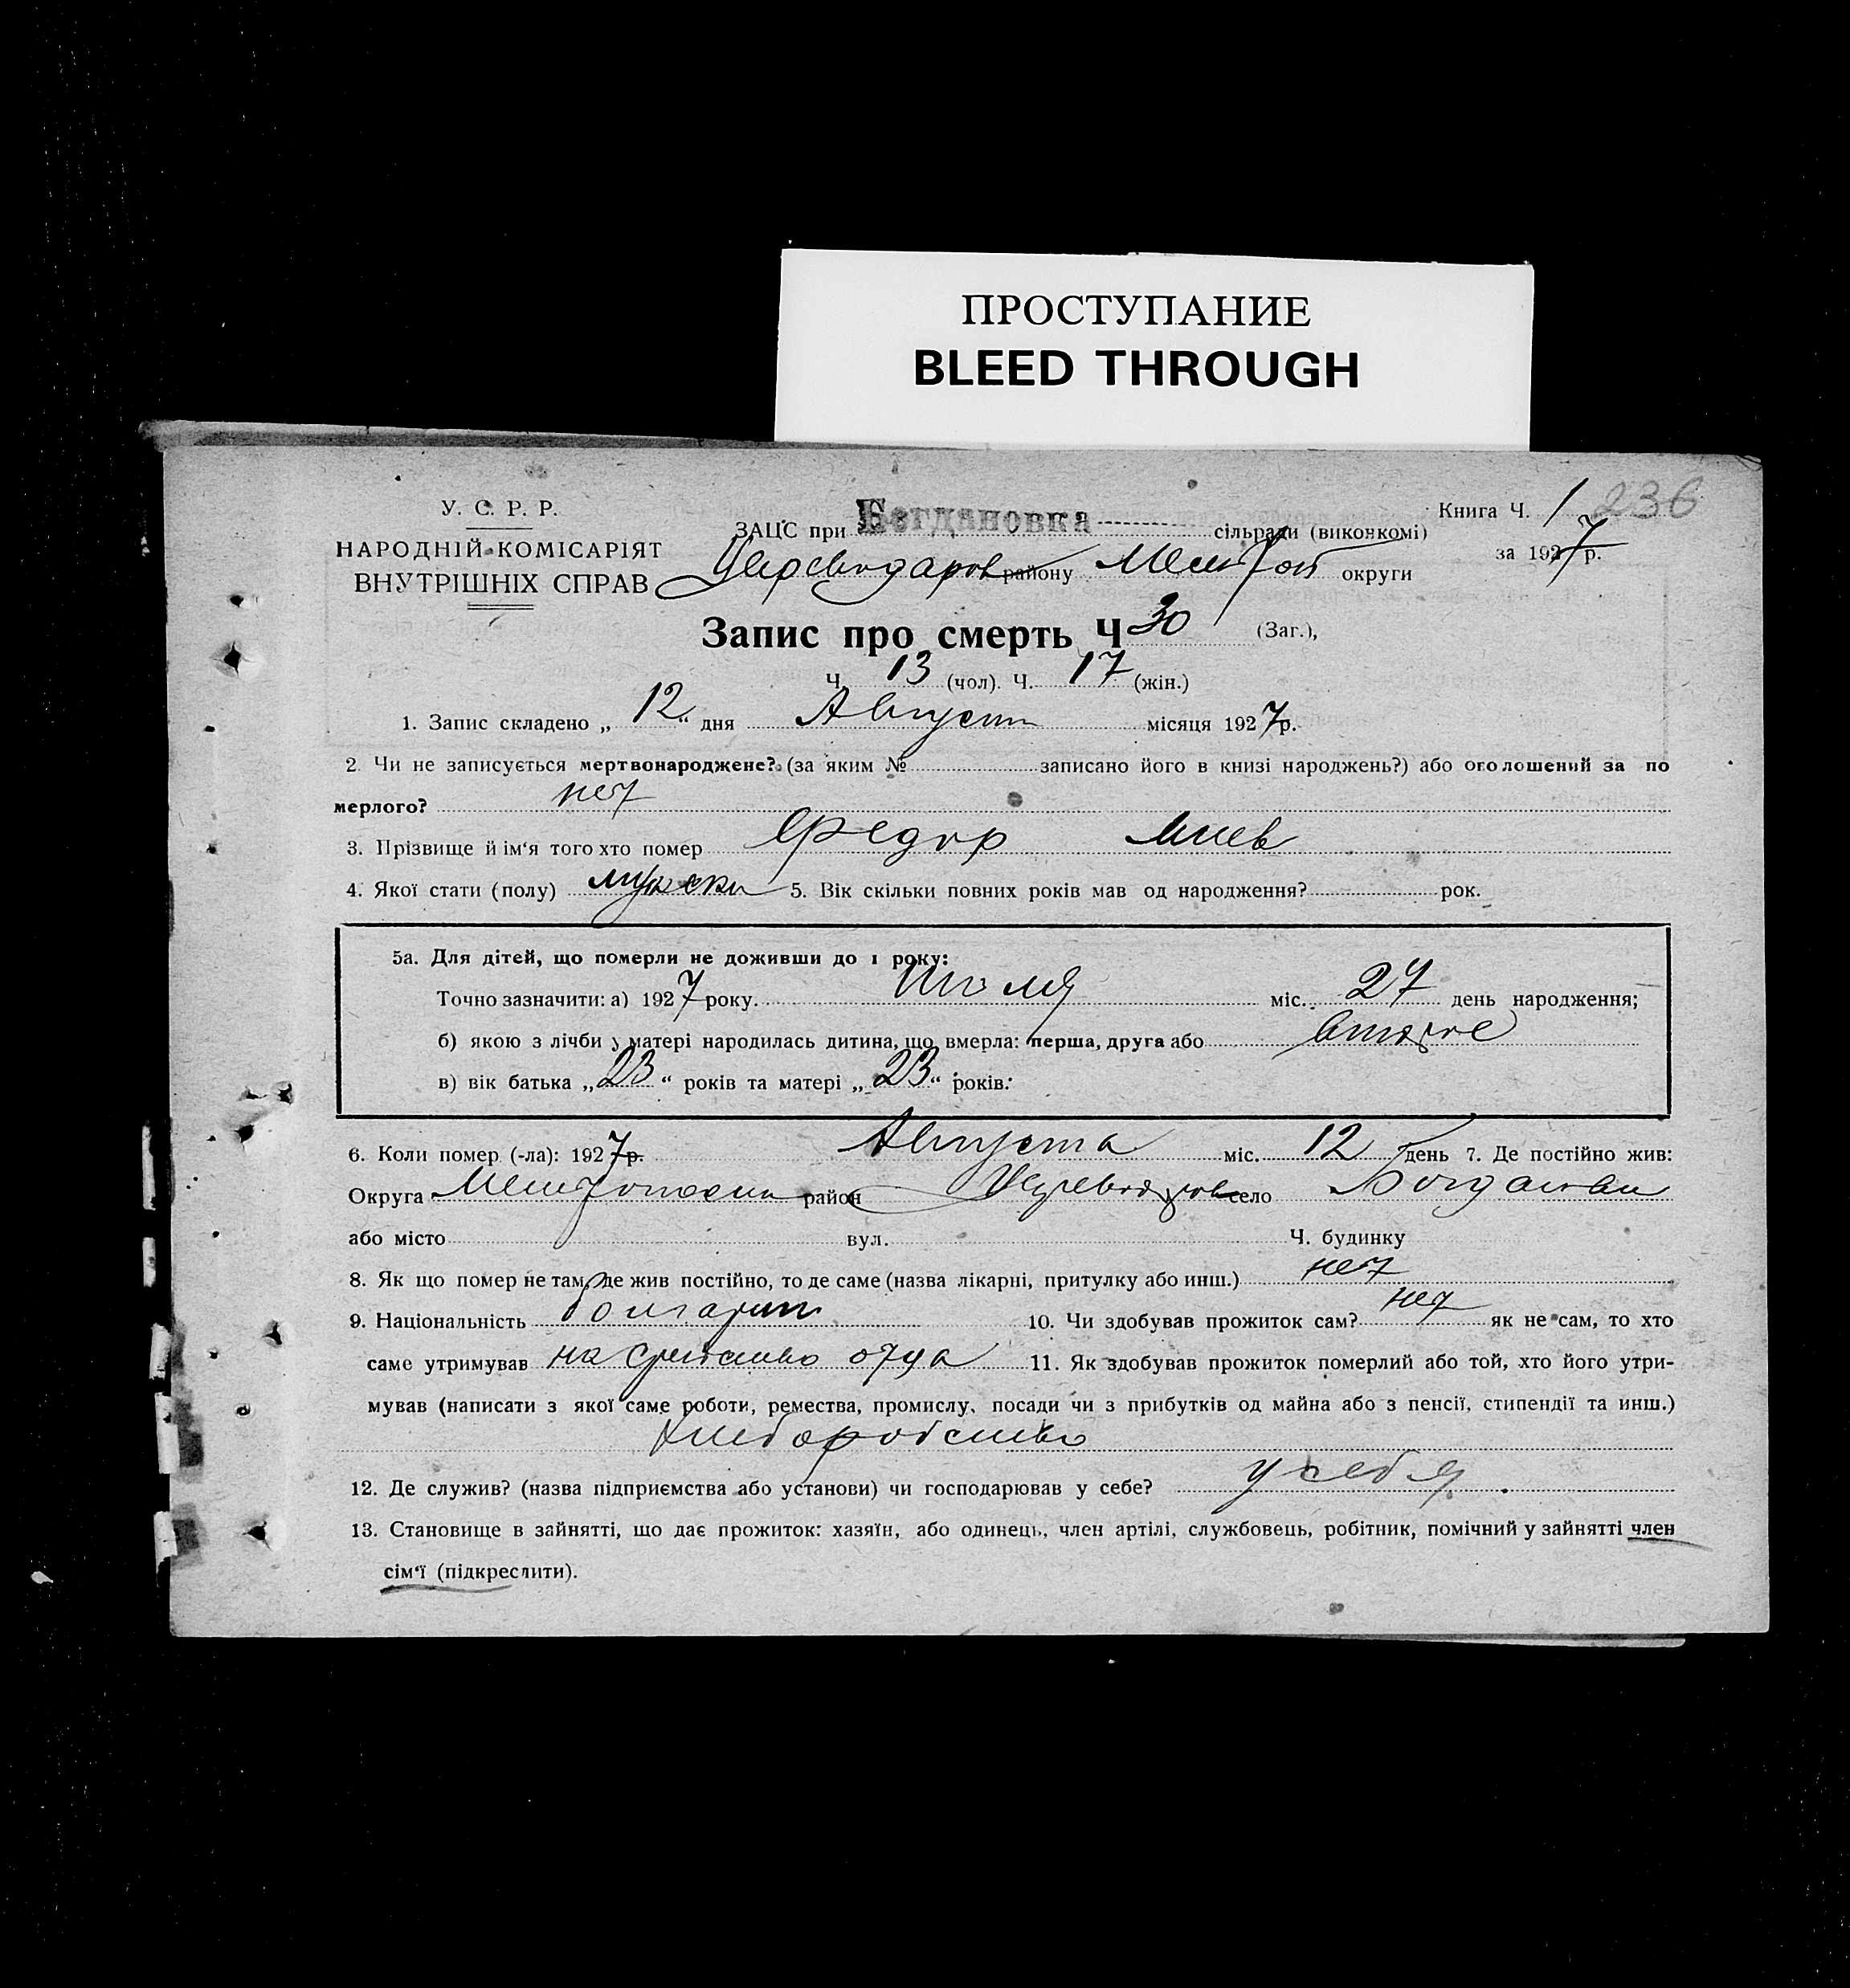 ПРОСТУПАНИЕ
BLEED THROUGH
У. С. Р. Р.
НАРОДНІЙ КОМІСАРІЯТ
ВНУТРІШНІХ СПРАВ
ЗАЦС при Богдановка сільради (виконкомі)
району Мелітоп округи
Книга Ч. 1 236
за 1927 р.
Запис про смерть Ч 30 (Заг.),
Ч. 13 (чол). Ч. 17 (жін.)
1. Запис складено „ 12 “ дня Август місяця 1927 р.
2. Чи не записується мертвонароджене? (за яким № записано його в книзі народжень?) або оголошений за по
мерлого? нет
3. Прізвище й ім‘я того хто помер Федор
4. Якої стати (полу) мужски 5. Вік скільки повних років мав од народження? рок.
5а. Для дітей, що померли не доживши до 1 року:
Точно зазначити: а) 1927 року. Июля міс. 27 день народження;
б) якою з лічби у матері народилась дитина, що вмерла: перша, друга або второе
в) вік батька „ 23 “ років та матері „ 23 “ років.
6. Коли помер (-ла): 1927 р. Августа міс. 12 день 7. Де постійно жив:
Округа район село Богдановки
або місто вул. Ч. будинку
8. Як що помер не там, де жив постійно, то де саме (назва лікарні, притулку або инш.) нет
9. Національність болгарин 10. Чи здобував прожиток сам? нет як не сам, то хто
саме утримував на отца 11. Як здобував прожиток померлий або той, хто його утри-
мував (написати з якої саме роботи, ремества, промислу, посади чи з прибутків од майна або з пенсії, стипендії та инш.)
Хлеборобство
12. Де служив? (назва підприємства або установи) чи господарював у себе? у себя
13. Становище в зайнятті, що дає прожиток: хазяїн, або одинець, член артілі, службовець, робітник, помічний у зайнятті член
сім‘ї (підкреслити).